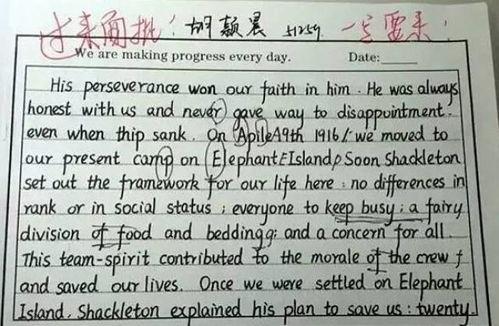 过来面批！胡颖晨 51259 一定要来！
We are making progress every day. Date:
His perseverance won our faith in him. He was always
honest with us and never gave way to disappointment.
even when thip sank. On Apile19th 1916, we moved to
our present camp on Elephant Island, Soon Shackleton
set out the framework for our life here: no differences in
rank or in social status; everyone to keep busy; a fairy
division of food and bedding; and a concern for all.
This team-spirit contributed to the morale of the crew
and saved our lives. Once we were settled on Elephant
Island, Shackleton explained his plan to save us: twenty